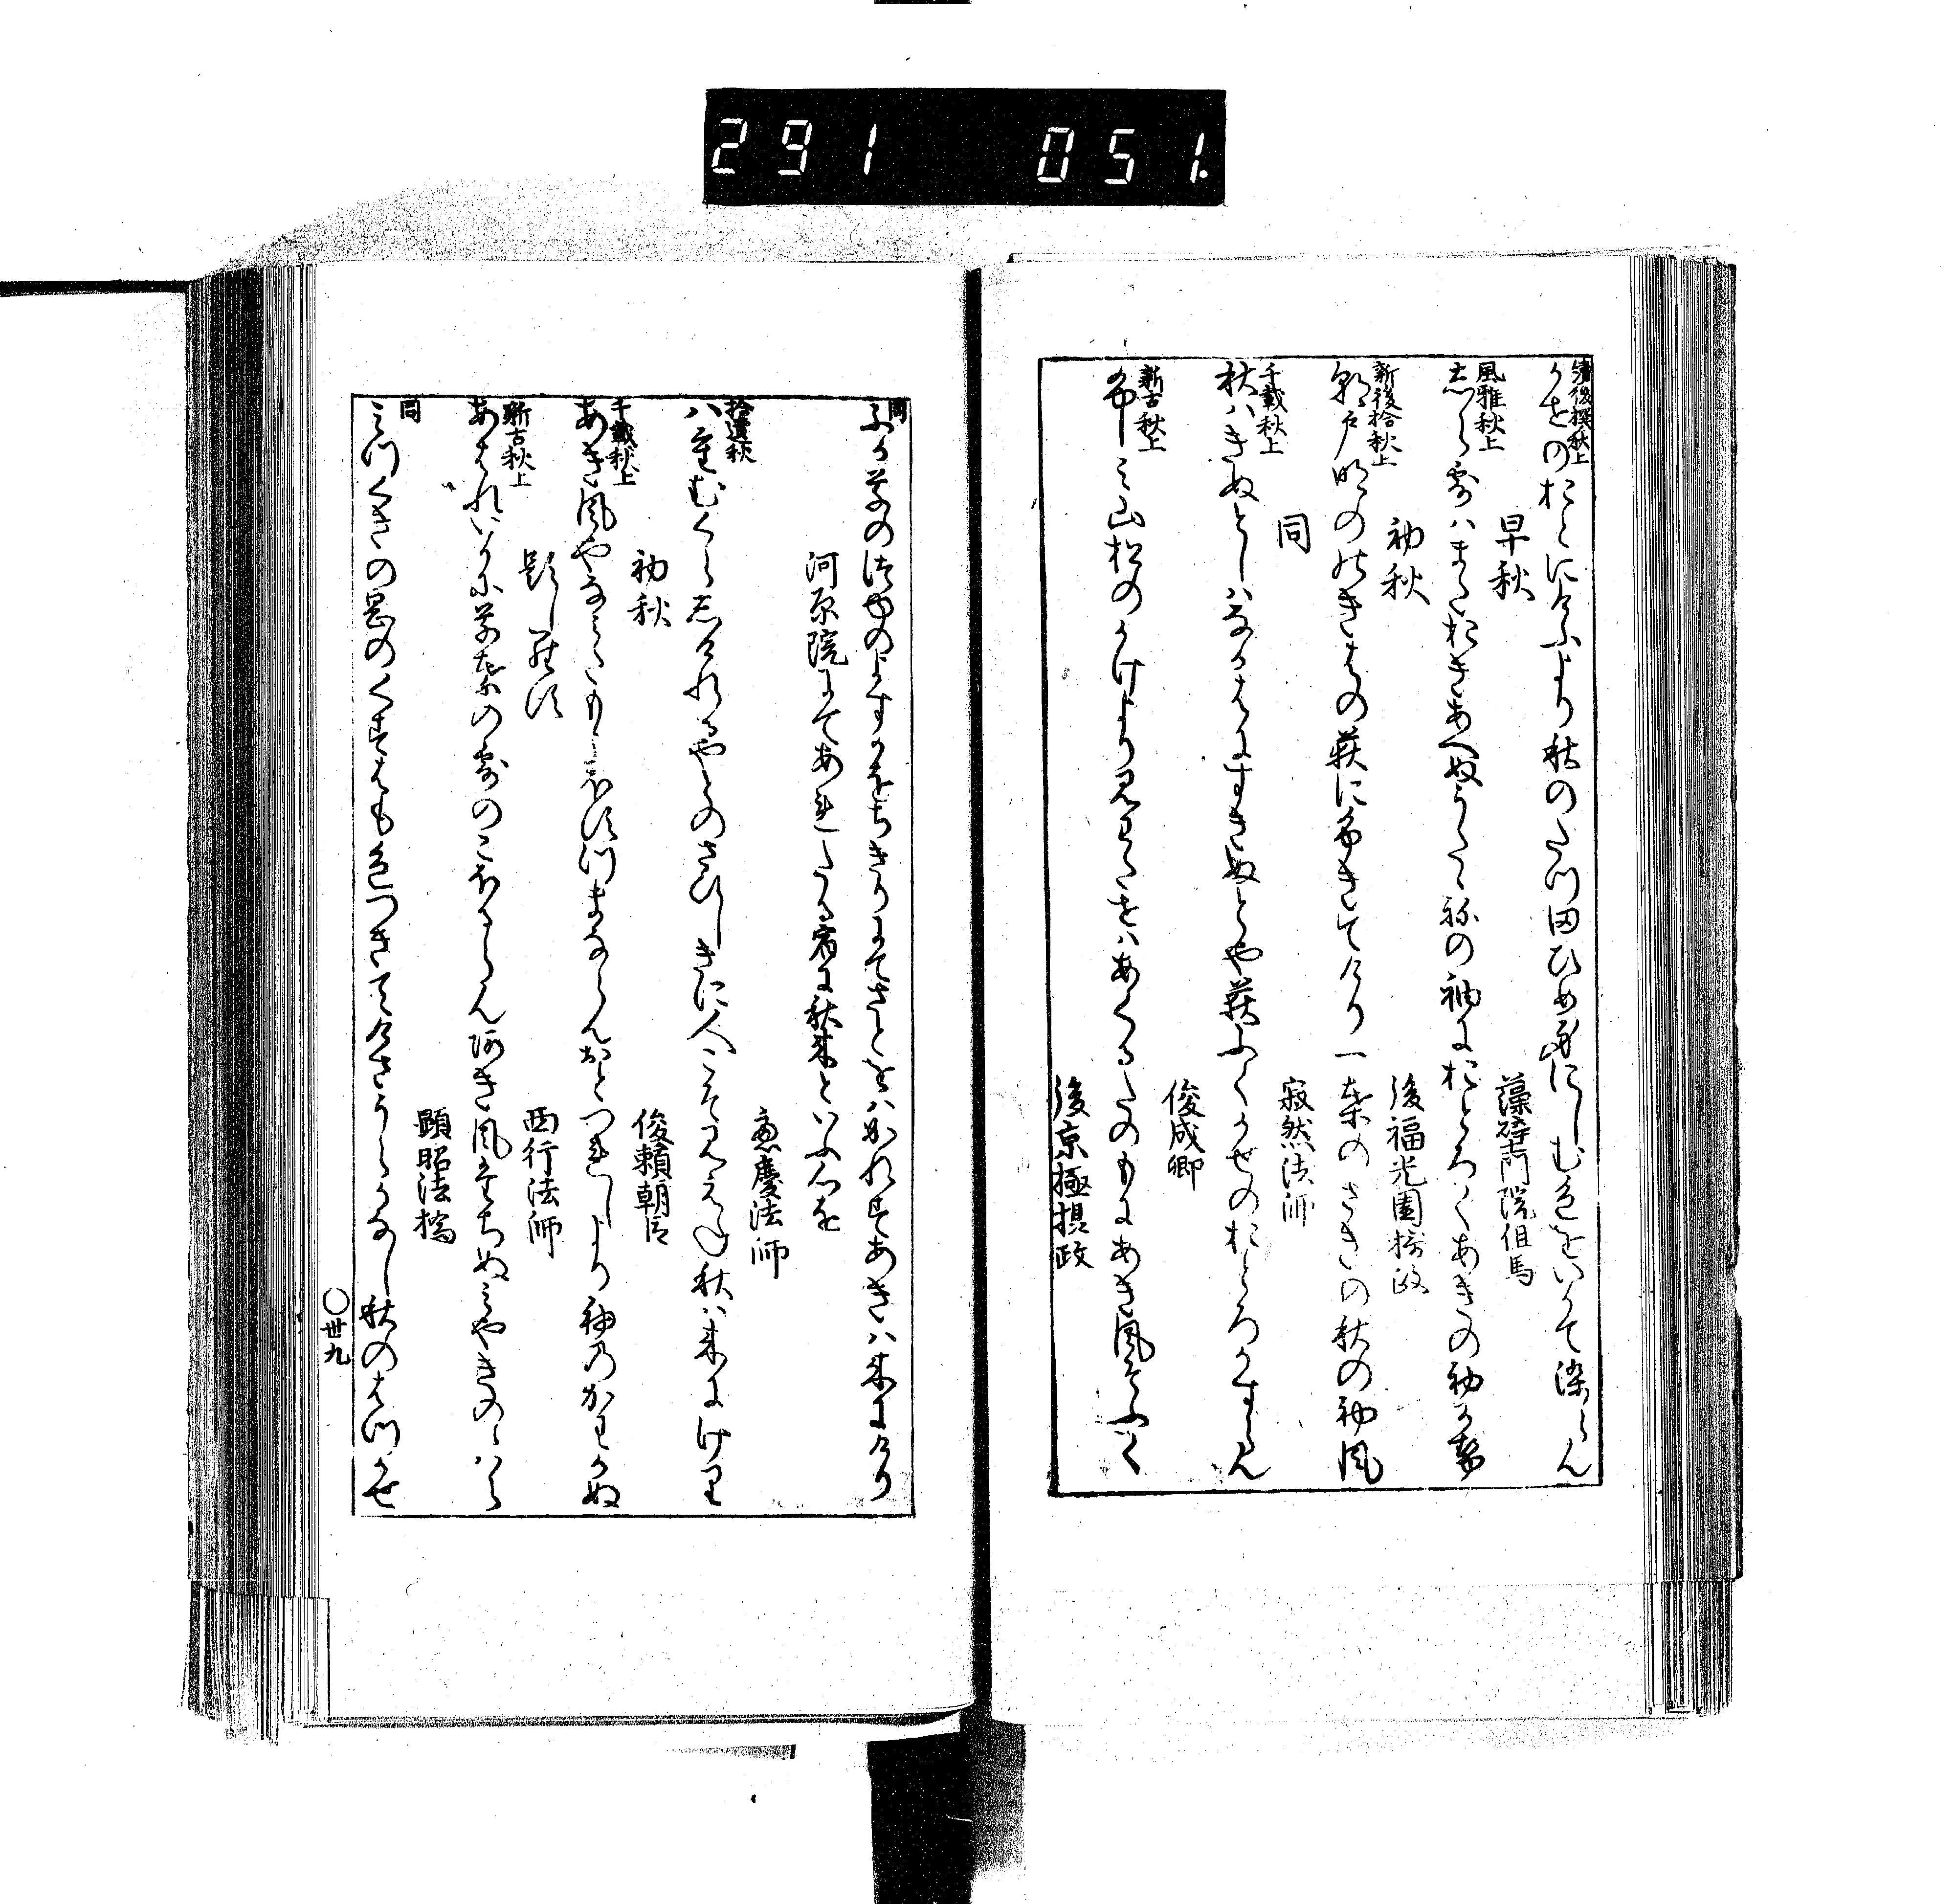 291 051.
續後撰秋上
かせのおとにけふより秋のたつ田ひめ身にしむ色をいかて染らん
早秋
藻璧門院但馬
風雅秋上
しら露はまたおきあへぬうたゝねの袖におとろくあきの初かせ
初秋
後福光園摂政
新後拾秋上
朝戸明の軒はの荻にふきてけり一葉のさきの秋の初風
同
寂然法師
千載秋上
秋はきぬとしはなかはにすきぬとや荻ふくかせのおとろかすらん
俊成卿
新古秋上
み山松のかけより見わたせはあくるたのもにあき風そふく
後京極摂政
同
ふか草の露のよすかをちきりにてさとをはかれすあきは来にけり
河原院にてあれたる宿に秋来といふ心を
恵慶法師
拾遺秋
八重むくらしけれるやとのさひしきに人こそみえね秋は来にけり
初秋
俊頼朝臣
千載秋上
あき風やなみたもよほすつまならんおとつれしより袖のかわかぬ
題しらす
西行法師
新古秋上
あはれいかに草葉の露のこほるらんあき風たちぬみやきのゝはら
顕昭法橋
同
みつくきの岡のくすはも色つきてけさうらかなし秋のはつかせ
〇丗九